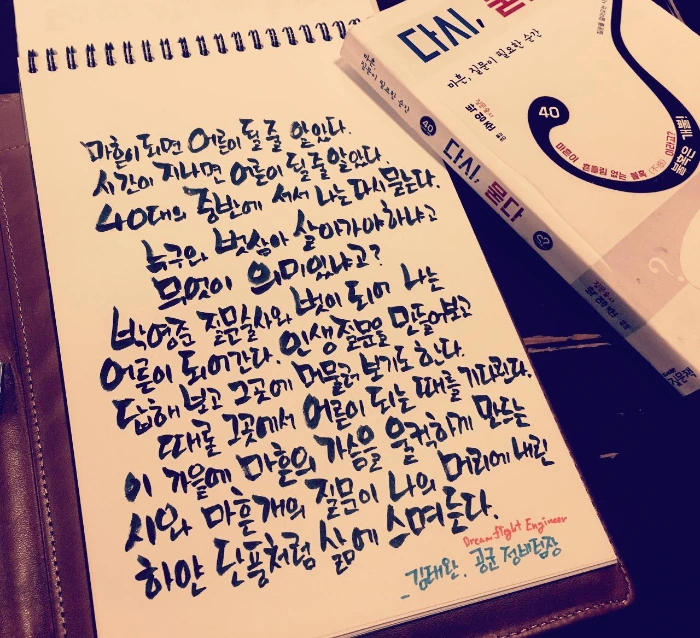 마흔이 되면 어른이 될 줄 알았다.
시간이 지나면 어른이 될 줄 알았다.
40대의 중반에 서서 나는 다시 묻는다.
누구와 벗삼아 살아가야 하냐고
무엇이 의미있냐고?
박영준 질문술사와 벗이 되어 나는
어른이 되어간다. 인생질문을 만들어보고
답해 보고 그곳에 머물러 보기도 한다.
때로 그곳에서 어른이 되는 때를 기다린다.
이 가을에 마흔의 가슴을 울컥하게 만드는
시와 마흔개의 질문이 나의 머리에 내린
하얀 단풍처럼 삶에 스며든다.
Dreamflight Engineer
_김태완. 공군 정비팀장
다시,
마흔, 질문이 필요한 순간
질문술사
박영준 씀
40
마흔이 흔들림 없는 불혹(不惑)이라고?
불혹은 개뿔!
마흔,
질문이 필요한 순간
40
다시, 묻다
질문술사
박영준 씀